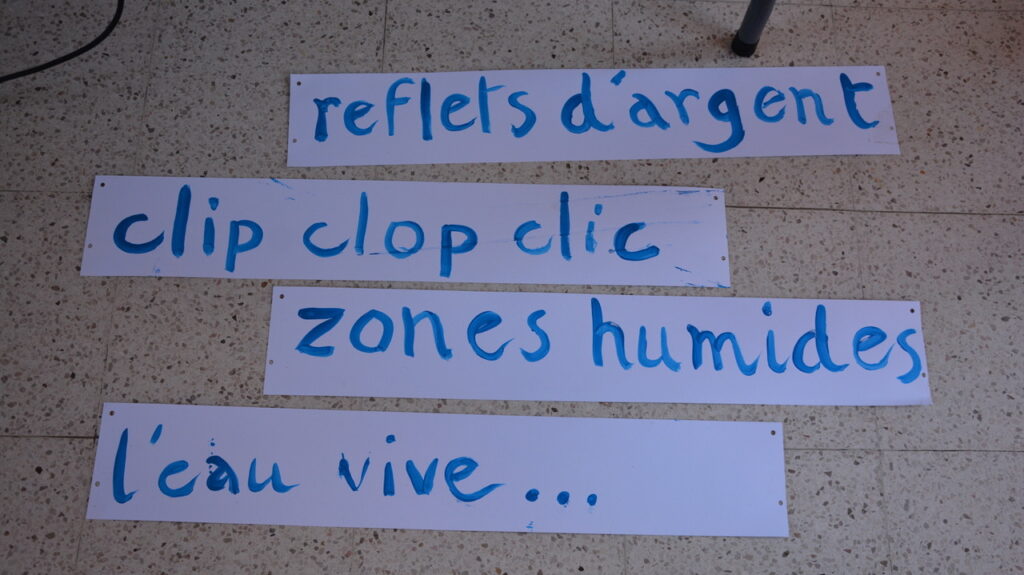 reflets d'argent
clip clop clic
zones humides
l'eau vive...